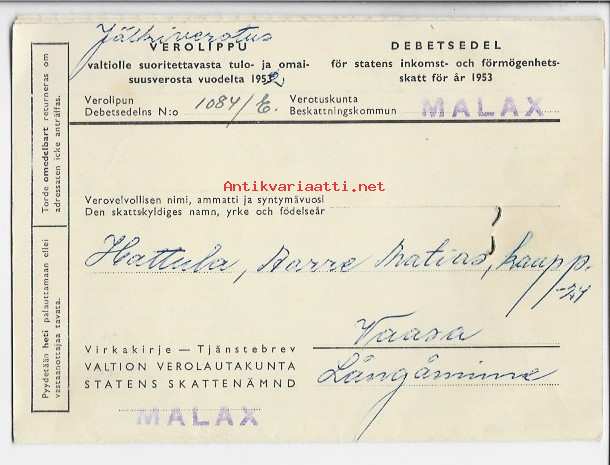 Jälkiverotus
VEROLIPPU
valtiolle suoritettavasta tulo- ja omai-
suusverosta vuodelta 1952
DEBETSEDEL
för statens inkomst- och förmögenhets-
skatt för år 1953
Verolipun
Debetsedelns N:o 1084/E.
Verotuskunta
Beskattningskommun MALAX
Antikvariaatti.net
Verovelvollisen nimi, ammatti ja syntymävuosi
Den skattskyldiges namn, yrke och födelseår
Hattula, Aarre Matias, kaupp.
-24
Vaasa
Långåminne
Virkakirje — Tjänstebrev
VALTION VEROLAUTAKUNTA
STATENS SKATTENÄMND
MALAX
Torde omedelbart returneras om
adressaten icke anträffas.
Pyydetään heti palauttamaan ellei
vastaanottajaa tavata.